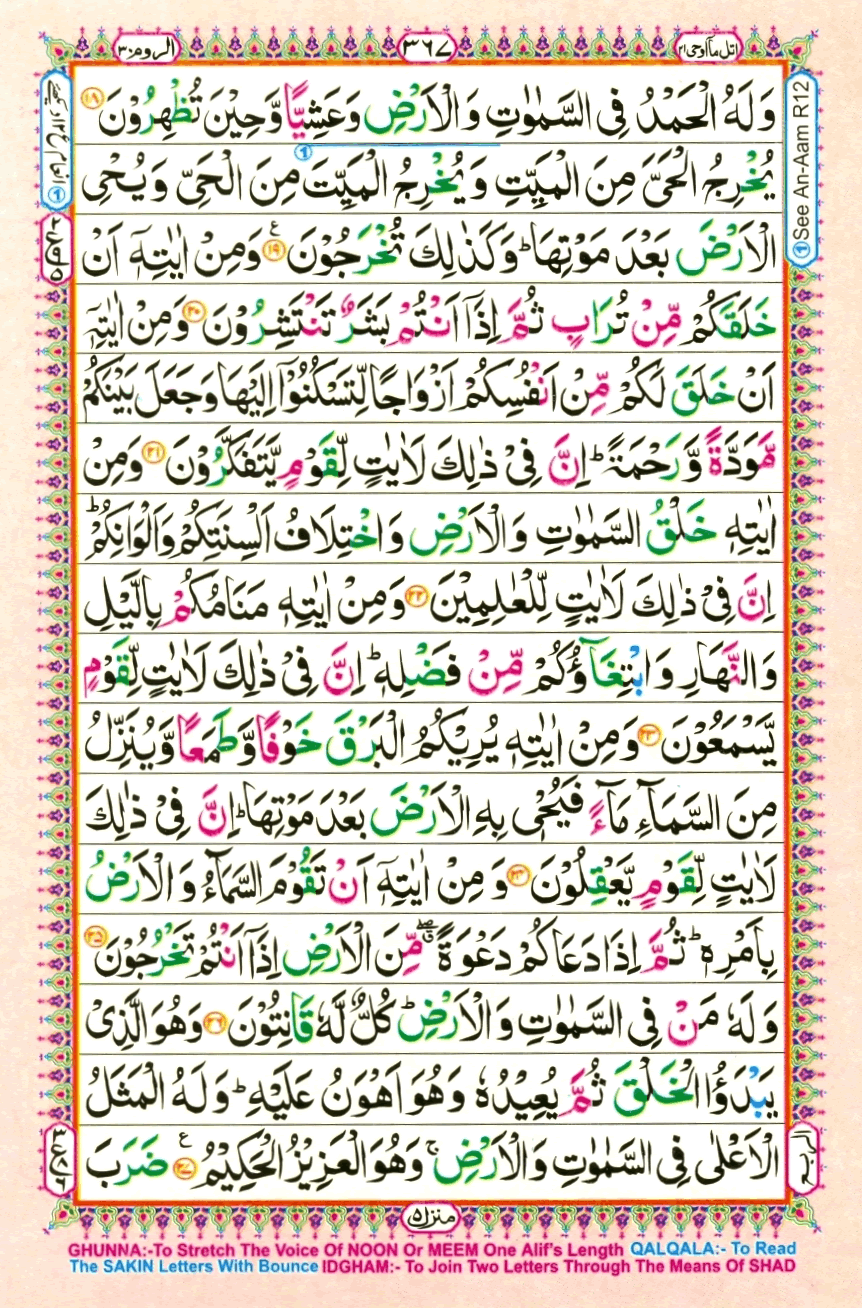 اتل مآ اوحی ۲۱
۳۶۷
الروم ۳۰
وَلَهُ الْحَمْدُ فِی السَّمٰوٰتِ وَالْاَرْضِ وَعَشِیًّا وَّحِیْنَ تُظْهِرُوْنَ ۱۸
یُخْرِجُ الْحَیَّ مِنَ الْمَیِّتِ وَیُخْرِجُ الْمَیِّتَ مِنَ الْحَیِّ وَیُحْیِ
الْاَرْضَ بَعْدَ مَوْتِهَا ؕ وَكَذٰلِكَ تُخْرَجُوْنَ ۱۹ ع وَمِنْ اٰیٰتِهٖۤ اَنْ
خَلَقَكُمْ مِّنْ تُرَابٍ ثُمَّ اِذَاۤ اَنْتُمْ بَشَرٌ تَنْتَشِرُوْنَ ۲۰ وَمِنْ اٰیٰتِهٖۤ
اَنْ خَلَقَ لَكُمْ مِّنْ اَنْفُسِكُمْ اَزْوَاجًا لِّتَسْكُنُوْۤا اِلَیْهَا وَجَعَلَ بَیْنَكُمْ
مَّوَدَّةً وَّرَحْمَةً ؕ اِنَّ فِیْ ذٰلِكَ لَاٰیٰتٍ لِّقَوْمٍ یَّتَفَكَّرُوْنَ ۲۱ وَمِنْ
اٰیٰتِهٖ خَلْقُ السَّمٰوٰتِ وَالْاَرْضِ وَاخْتِلَافُ اَلْسِنَتِكُمْ وَاَلْوَانِكُمْ ؕ
اِنَّ فِیْ ذٰلِكَ لَاٰیٰتٍ لِّلْعٰلِمِیْنَ ۲۲ وَمِنْ اٰیٰتِهٖ مَنَامُكُمْ بِالَّیْلِ
وَالنَّهَارِ وَابْتِغَآؤُكُمْ مِّنْ فَضْلِهٖ ؕ اِنَّ فِیْ ذٰلِكَ لَاٰیٰتٍ لِّقَوْمٍ
یَّسْمَعُوْنَ ۲۳ وَمِنْ اٰیٰتِهٖ یُرِیْكُمُ الْبَرْقَ خَوْفًا وَّطَمَعًا وَّیُنَزِّلُ
مِنَ السَّمَآءِ مَآءً فَیُحْیٖ بِهِ الْاَرْضَ بَعْدَ مَوْتِهَا ؕ اِنَّ فِیْ ذٰلِكَ
لَاٰیٰتٍ لِّقَوْمٍ یَّعْقِلُوْنَ ۲۴ وَمِنْ اٰیٰتِهٖۤ اَنْ تَقُوْمَ السَّمَآءُ وَالْاَرْضُ
بِاَمْرِهٖ ؕ ثُمَّ اِذَا دَعَاكُمْ دَعْوَةً مِّنَ الْاَرْضِ اِذَاۤ اَنْتُمْ تَخْرُجُوْنَ ۲۵
وَلَهٗ مَنْ فِی السَّمٰوٰتِ وَالْاَرْضِ ؕ كُلٌّ لَّهٗ قَانِتُوْنَ ۲۶ وَهُوَ الَّذِیْ
یَبْدَؤُا الْخَلْقَ ثُمَّ یُعِیْدُهٗ وَهُوَ اَهْوَنُ عَلَیْهِ ؕ وَلَهُ الْمَثَلُ
الْاَعْلٰی فِی السَّمٰوٰتِ وَالْاَرْضِ ۚ وَهُوَ الْعَزِیْزُ الْحَكِیْمُ ۲۷ ع ضَرَبَ
① See An-Aam R12
منزل ۵
GHUNNA:-To Stretch The Voice Of NOON Or MEEM One Alif's Length QALQALA:- To Read
The SAKIN Letters With Bounce IDGHAM:- To Join Two Letters Through The Means Of SHAD